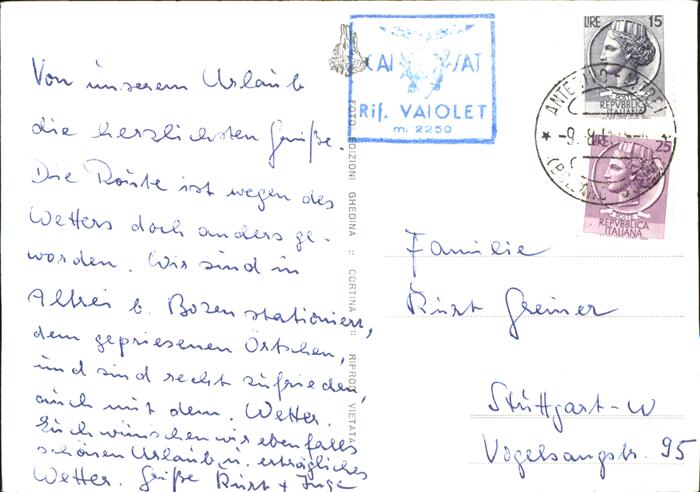 Von unserem Urlaub
die herzlichsten Grüße.
Die Route ist wegen des
Wetters doch anders ge-
worden. Wir sind in
Altrei b. Bozen stationiert,
dem gepriesenen Örtchen,
und sind recht zufrieden,
auch mit dem Wetter.
Euch wünschen wir ebenfalls
schönen Urlaub u. erträgliches
Wetter. Grüße Kurt + Inge
FOTO EDIZIONI GHEDINA :: CORTINA :: RIPROD. VIETATA
CAI SAT
Rif. VAIOLET
m. 2250
LIRE 15
POSTE
REPVBBLICA
ITALIANA
-9. 8.
LIRE 25
POSTE
REPVBBLICA
ITALIANA
Familie
Kurt Greiner
Stuttgart-W
Vogelsangstr. 95